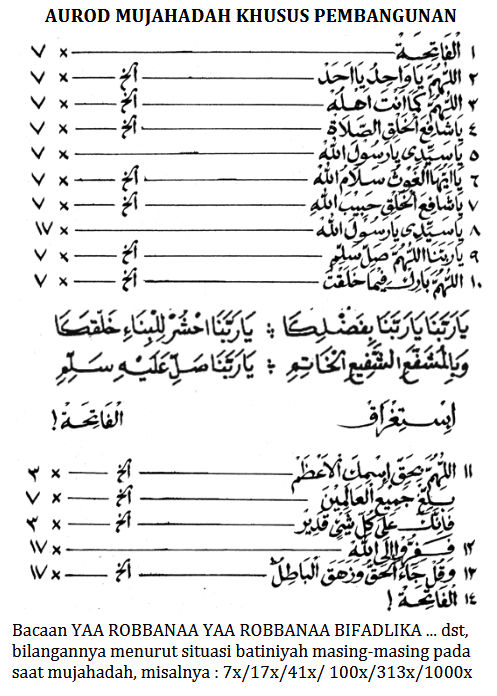 AUROD MUJAHADAH KHUSUS PEMBANGUNAN
١ اَلْفَاتِحَةْ × ٧
٢ اَللّٰهُمَّ يَاوَاحِدُ يَااَحَدْ الخ × ٧
٣ اَللّٰهُمَّ كَمَا اَنْتَ اَهْلُهْ الخ × ٧
٤ يَاشَافِعَ الْخَلْقِ الصَّلَاةْ الخ × ٧
٥ يَاسَيِّدِى يَارَسُوْلَ اللهْ × ٧
٦ يَااَيُّهَا الْغَوْثُ سَلَامُ اللهْ الخ × ٧
٧ يَاشَافِعَ الْخَلْقِ حَبِيْبَ اللهِ الخ × ٧
٨ يَاسَيِّدِى يَارَسُوْلَ اللهْ × ١٧
٩ يَارَبَّنَا اللّٰهُمَّ صَلِّ سَلِّمِ الخ × ٧
١٠ اَللّٰهُمَّ بَارِكْ فِيْمَا خَلَقْتَ الخ × ٧
يَارَبَّنَا يَارَبَّنَا بِفَضْلِكَا : يَارَبَّنَا احْشُرْ لِلْبِنَاءِ خَلْقَكَا
وَبِالْمُشَفَّعِ الشَّفِيْعِ الْخَاتِمِ : يَارَبَّنَا صَلِّ عَلَيْهِ سَلِّمِ
اِسْتِغْرَاقْ اَلْفَاتِحَةْ !
١١ اَللّٰهُمَّ بِحَقِّ اِسْمِكَ الْاَعْظَمْ الخ × ٣
بَلِّغْ جَمِيْعَ الْعَالَمِيْنَ الخ × ٧
فَاِنَّكَ عَلٰى كُلِّ شَيْئٍ قَدِيْرْ الخ × ٣
١٢ فَفِرُّوْا اِلَى اللهْ × ١٧
١٣ وَقُلْ جَاءَ الْحَقُّ وَزَهَقَ الْبَاطِلُ الخ × ١٧
١٤ اَلْفَاتِحَةْ !
Bacaan YAA ROBBANAA YAA ROBBANAA BIFADLIKA ... dst,
bilangannya menurut situasi batiniyah masing-masing pada
saat mujahadah, misalnya : 7x/17x/41x/ 100x/313x/1000x